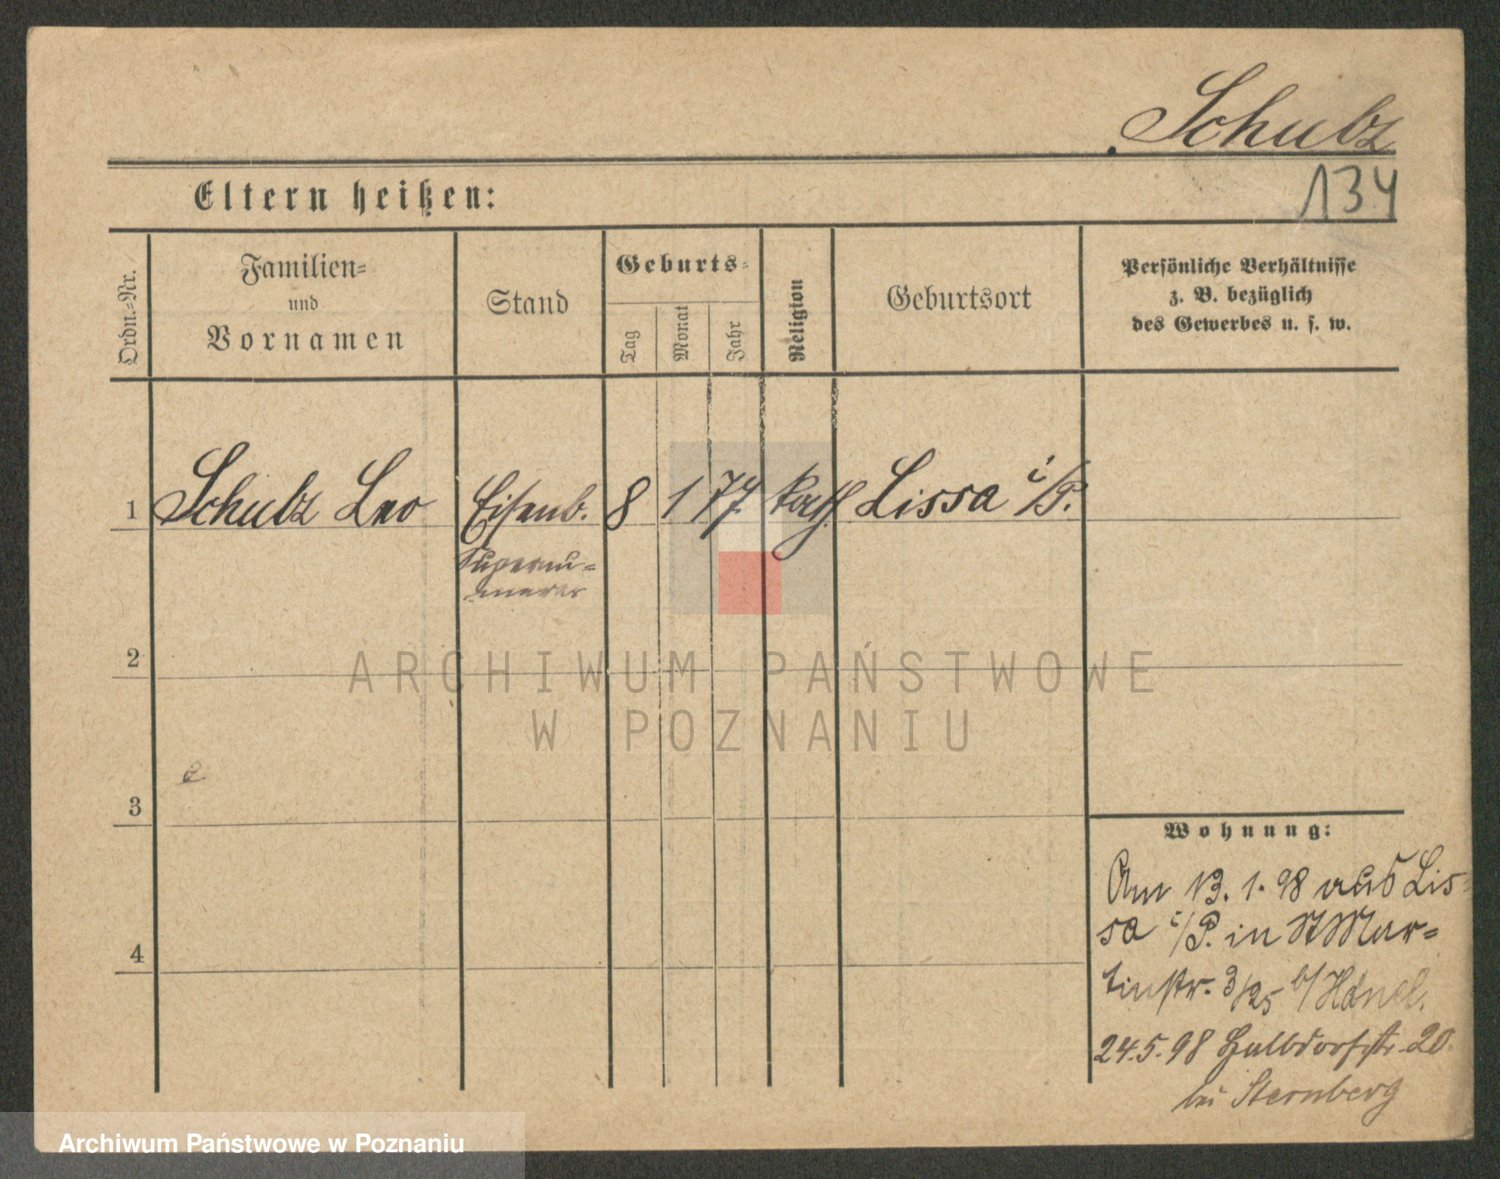 Schulz
134
Eltern heißen:
Ordn.-Nr.
Familien-
und
Vornamen
Stand
Geburts-
Tag
Monat
Jahr
Religion
Geburtsort
Persönliche Verhältnisse
z. B. bezüglich
des Gewerbes u. s. w.
1 Schulz Leo Eisenb. 8 1 77 kath. Lissa i/P.
Supernu-
merar
2
3
4
Wohnung:
Am 13. 1. 98 aus Lis-
sa i/P. in St Mar-
tinstr. 3/25 b/
24.5.98 Halbdorfstr. 20.
bei Sternberg
ARCHIWUM PAŃSTWOWE
W POZNANIU
Archiwum Państwowe w Poznaniu